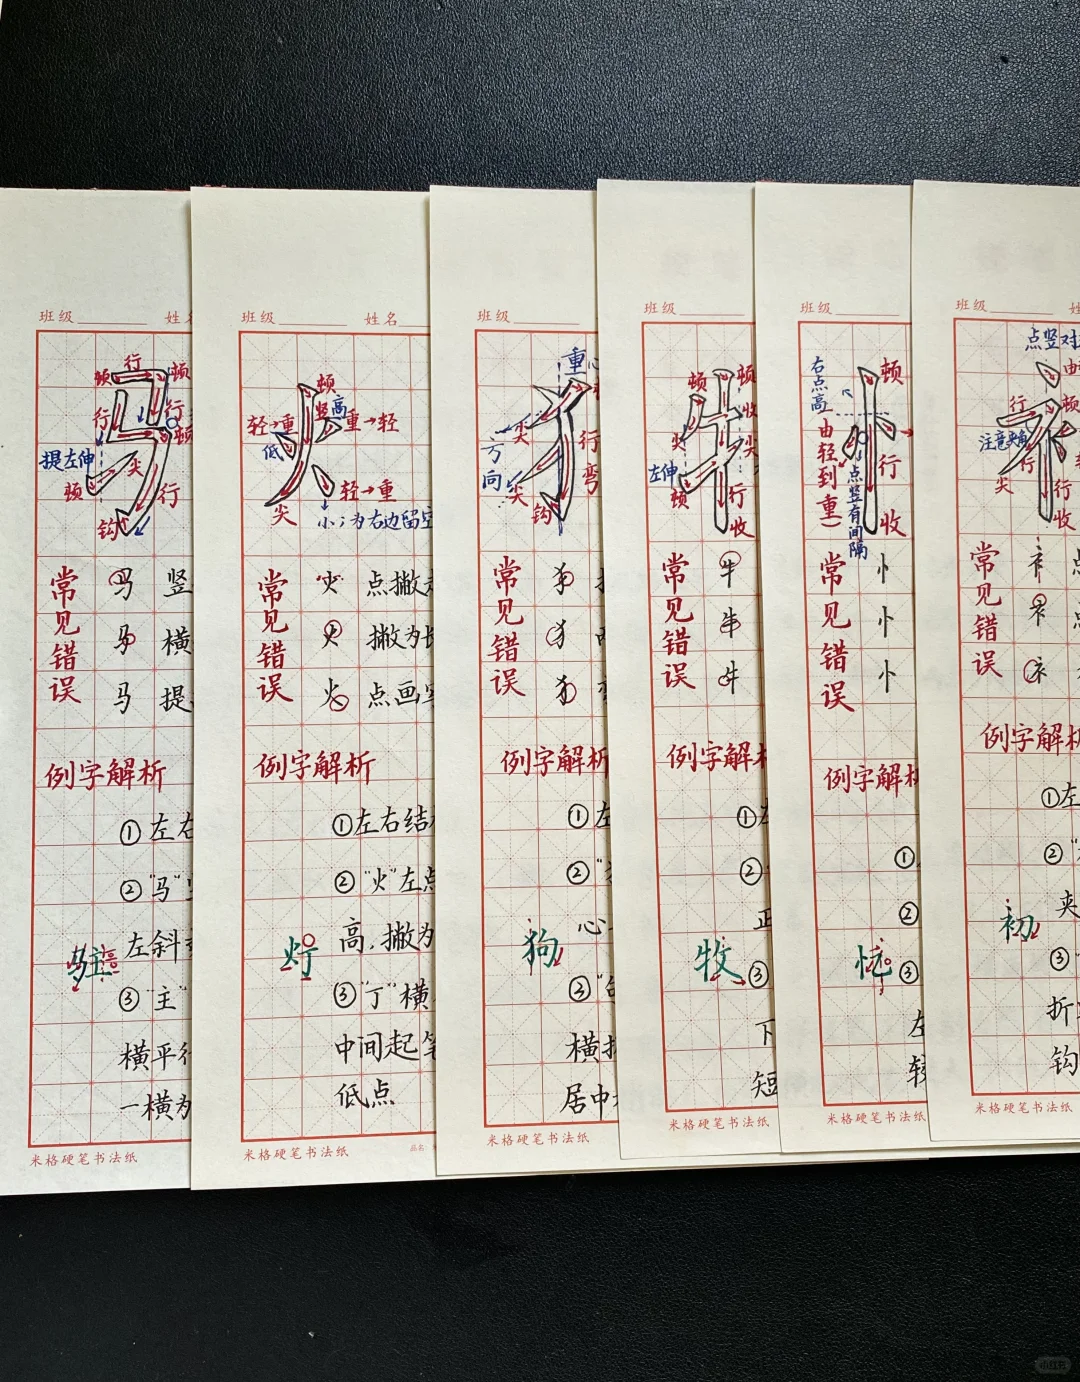 班级 姓
顿 行 顿
行 行
顿
提左伸 尖
顿 行
钩
常见错误
马 竖
马 横
马 提
例字解析
①左右
②"马"
左斜
驻 高
③"主"
横平行
一横为
米格硬笔书法纸
班级 姓名
顿
竖高
轻→重 重→轻
低
轻→重
尖
小;为右边留空
常见错误
火 点撇
火 撇为
火 点画
例字解析
①左右结
②"火"左点
高,撇为
灯
③"丁"横
中间起笔
低点
米格硬笔书法纸
品名
班级
重心
尖 行弯
方向
尖
钩
常见错误
犭
犭
犭
例字解析
①左
②
心
狗
③
横折
居中
米格硬笔书法纸
班级
顿 顿
收
尖 尖
左伸
顿 行
收
常见错误
牛
牛
牛
例字解析
①左
②
正
牧
③
下
短
米格硬笔书法纸
班级
右点高
顿
(由轻到重)
行
点竖有间隔
收
常见错误
忄
忄
忄
例字解析
①
②
③
左
较
米格硬笔书法纸
班级
点竖对
由
行 顿
注意夹角
行
尖 行
收
常见错误
衤 点
衤
衤
例字解析
①左
②
夹
初
③
折
钩
米格硬笔书法纸
小红书